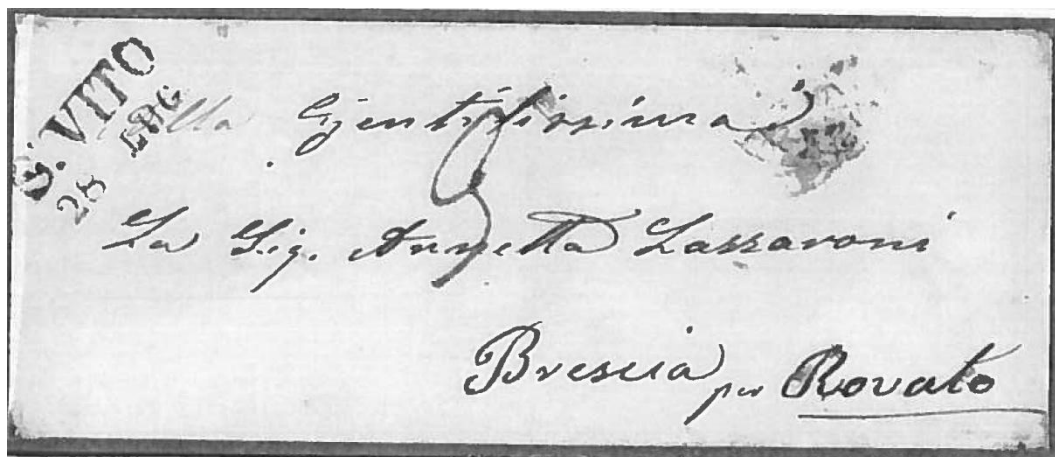 S. VITO
28 LUG
Alla Gentilissima
La Sig. Annetta Lazzaroni
Brescia per Rovato